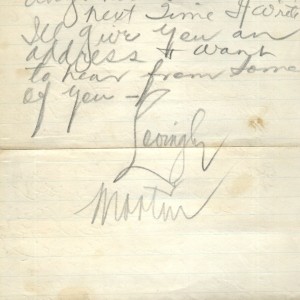 next Time I write
I'll give you an
address I want
to hear from some
of you —
Lovingly
Martin